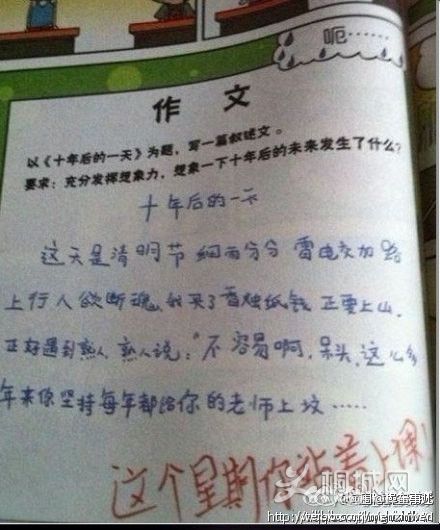 呃……
作 文
以《十年后的一天》为题，写一篇叙述文。
要求：充分发挥想象力，想象一下十年后的未来发生了什么？
十年后的一天
这天是清明节 细雨分分 雷电交加 路
上行人欲断魂，我买了香烛纸钱 正要上山，
正好遇到熟人，熟人说：“不容易啊，呆头，这么多
年来你坚持每年都给你的老师上坟……
这个星期你站着上课！
桐城网